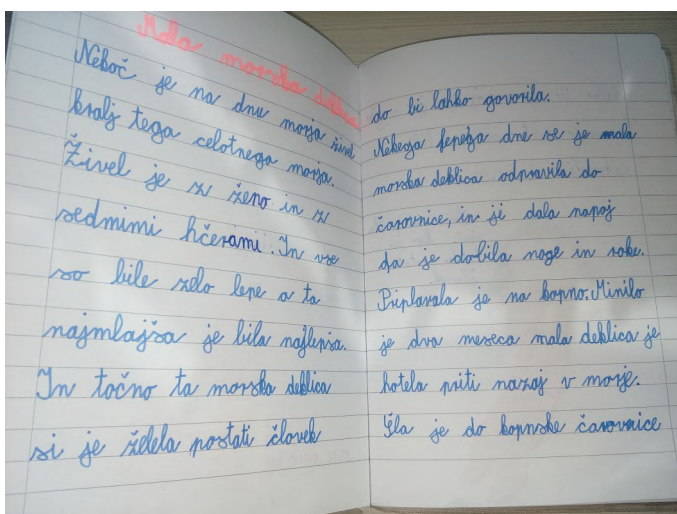 Mala morska deklica
Nekoč je na dnu morja živel
kralj tega celotnega morja.
Živel je z ženo in z
sedmimi hčerami. In vse
so bile zelo lepe a ta
najmlajša je bila najlepša.
In točno ta morska deklica
si je želela postati človek
do bi lahko govorila.
Nekega lepega dne se je mala
morska deklica odpravila do
čarovnice, in ji dala napoj
da je dobila noge in roke.
Priplavala je na kopno. Minilo
je dva meseca mala deklica je
hotela priti nazaj v morje.
Šla je do kopnske čarovnice